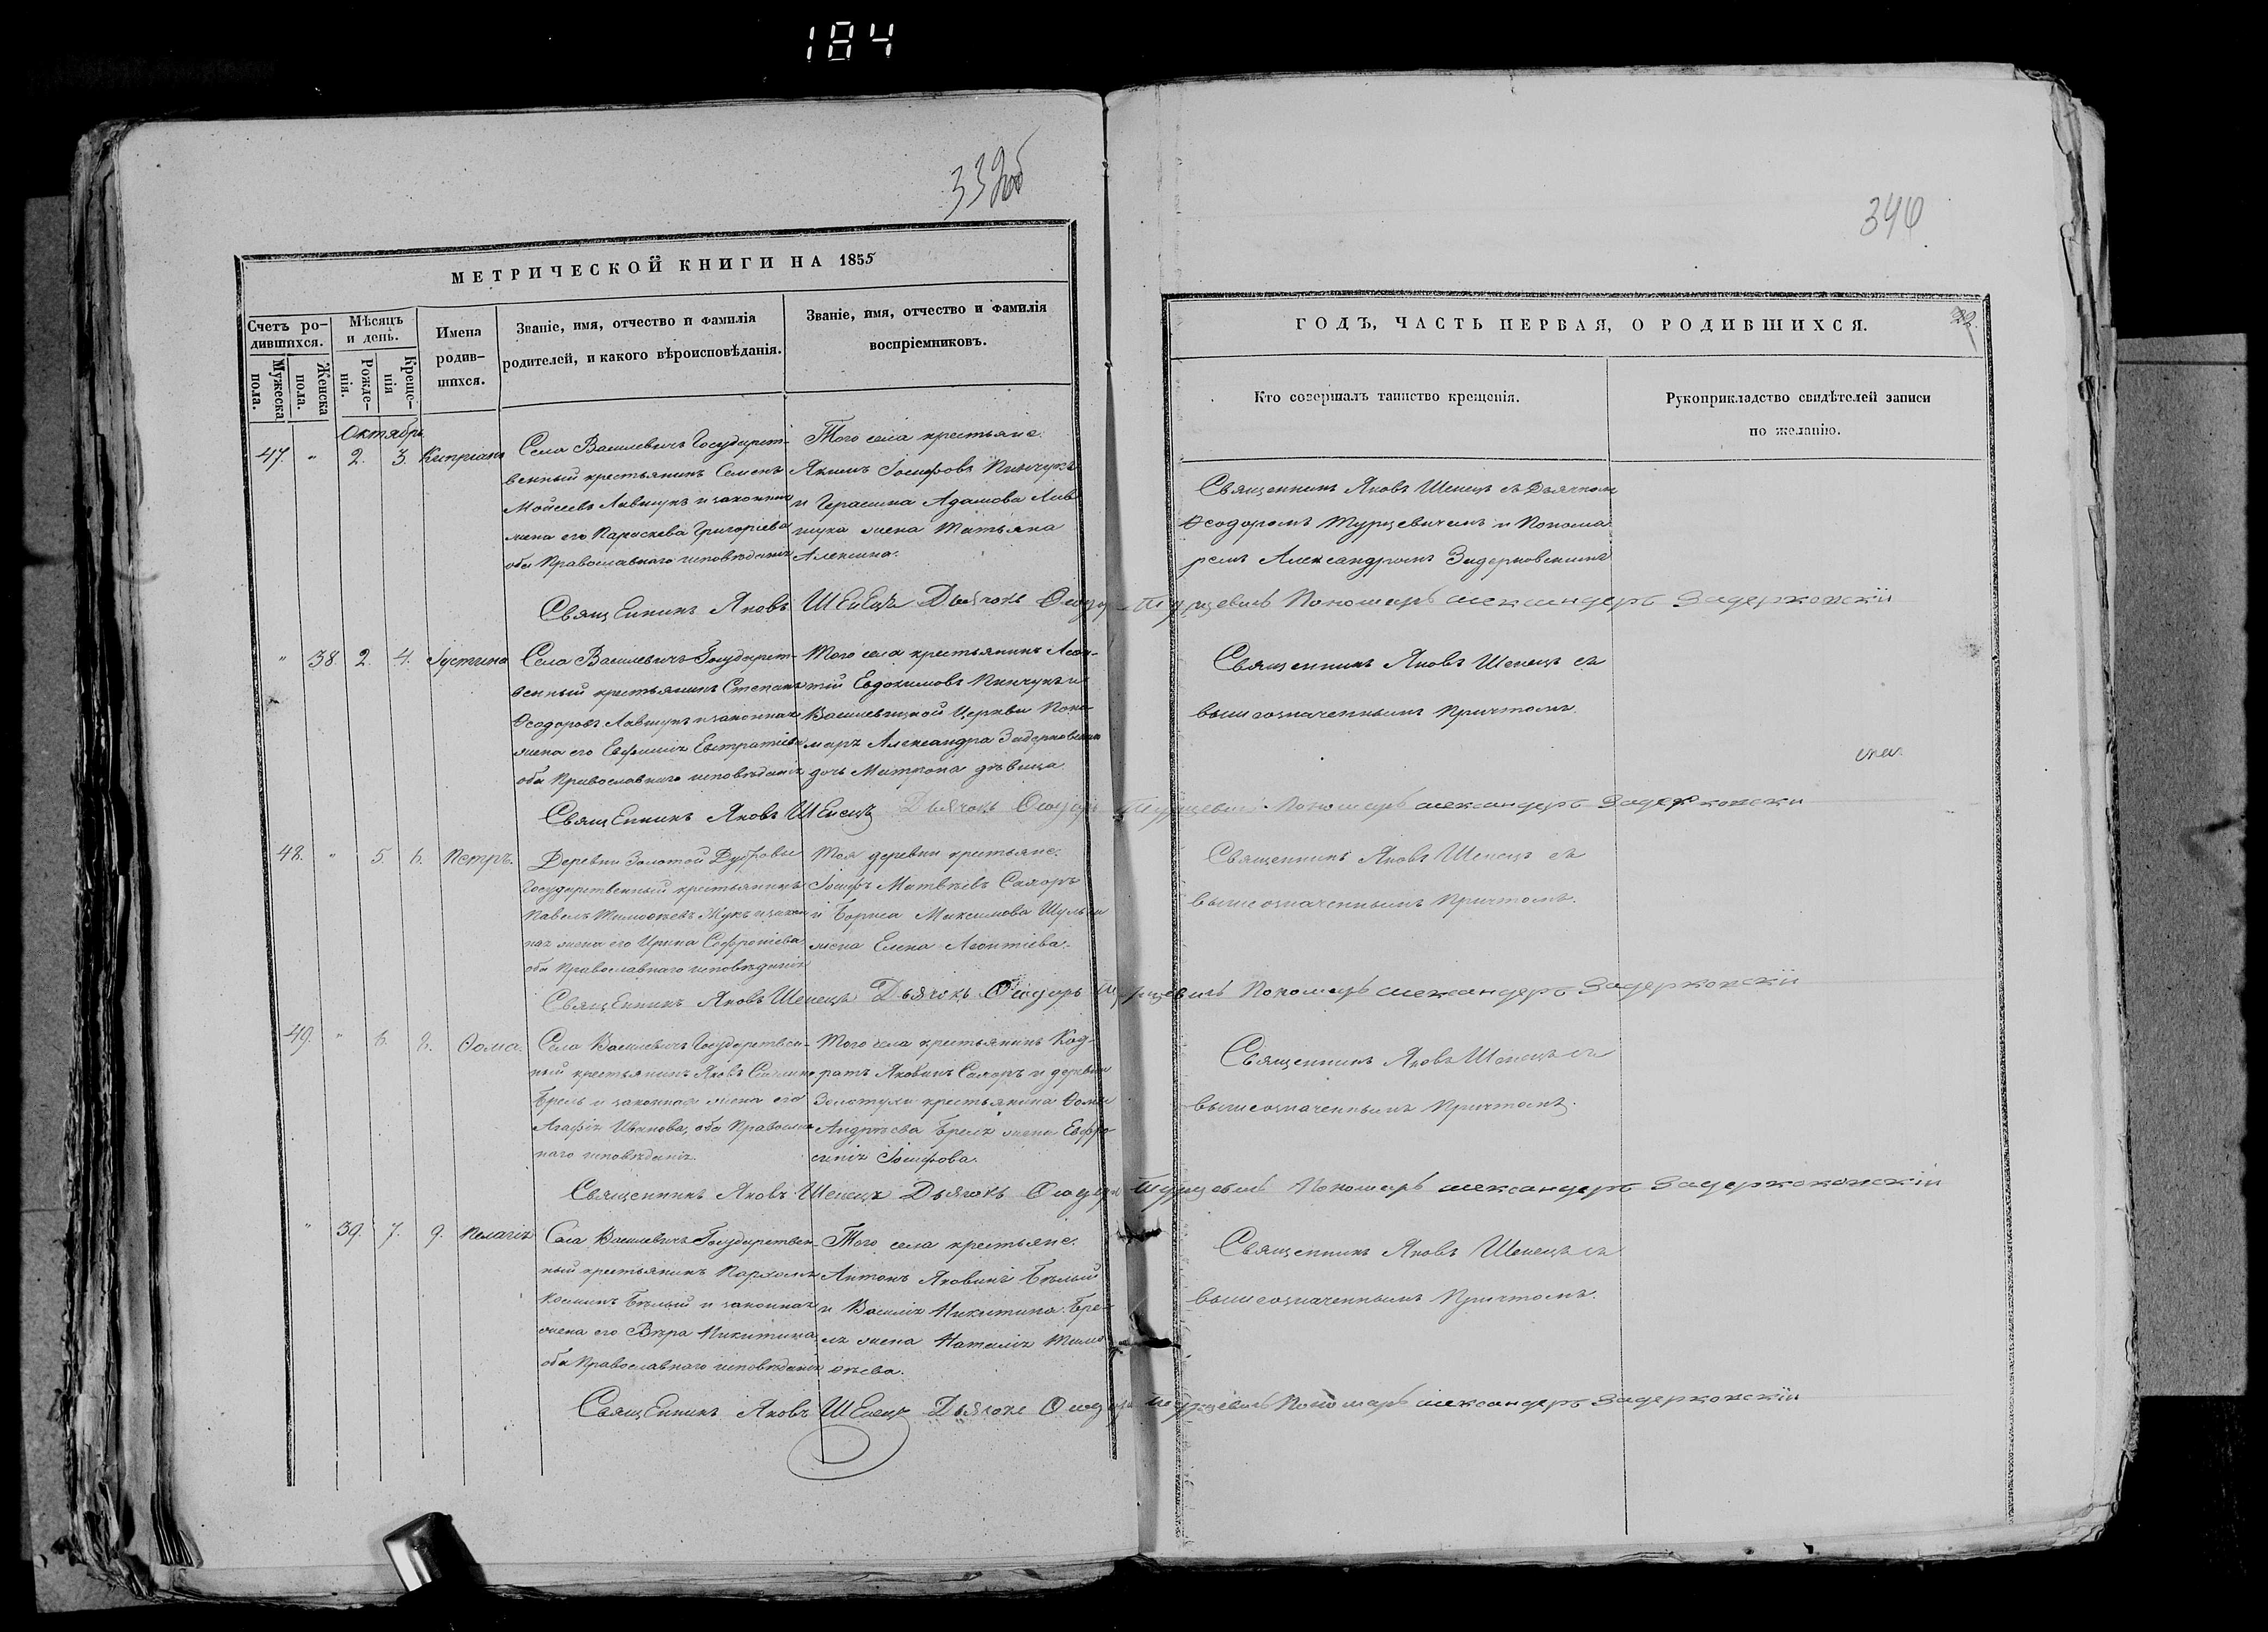 184
339об
340
МЕТРИЧЕСКОЙ КНИГИ НА 1855
Счетъ родившихся.
Мужеска пола.
Женска пола.
Мѣсяцъ и день.
Рожденія.
Крещенія
Имена родившихся.
Званіе, имя, отчество и фамилія
родителей, и какого вѣроисповѣданія.
Званіе, имя, отчество и фамилія
воспріемниковъ.
ГОДЪ, ЧАСТЬ ПЕРВАЯ, О РОДИВШИХСЯ.
22.
Кто совершалъ таинство крещенія.
Рукоприкладство свидѣтелей записи
по желанію.
Октябрь
47. " 2. 3. Кипріанъ
Села Василевичъ Государст-
венный крестьянинъ Семенъ
Мойсеевъ Лавшукъ и законная
жена его Параскева Григоріева
оба Православнаго исповѣданія
Того села крестьяне.
Якимъ Іосифовъ Пинчукъ
и Герасима Адамова Лав
шука жена Татьяна
Алексина.
Священникъ Яковъ Шепецъ съ Дьячкомъ
Ѳеодоромъ Турцевичемъ и Понома
ремъ Александромъ Задерковскимъ
Священникъ Яковъ Шепецъ Дьячокъ Ѳеодоръ Турцевичъ Пономарь Александеръ Задерковскій
" 38. 2. 4. Іустина
Села Василевичъ Государст-
венный крестьянинъ Степанъ
Ѳеодоровъ Лавшукъ и законная
жена его Евфимія Евстратіева
оба Православнаго исповѣданія
Того села крестьянинъ Леон-
тій Евдокимовъ Пинчукъ и
Василевицкой Церкви Поно-
маря Александра Задерковскаго
дочь Матрона дѣвица
Священникъ Яковъ Шепецъ съ
вышеозначеннымъ Причтомъ.
Священникъ Яковъ Шепецъ Дьячокъ Ѳеодоръ Турцевичъ Пономарь Александеръ Задерковски
48. " 5. 6. Петръ.
Деревни Золотой Дубровы
Государственный крестьянинъ
Павелъ Тимоѳеевъ Жукъ и закон
ная жена его Ирина Софроніева
оба Православнаго исповѣданія
Тоя деревни крестьяне.
Іосифъ Матвѣевъ Скляръ
и Бориса Максимова Шульги
жена Елена Леонтіева.
Священникъ Яковъ Шепецъ съ
вышеозначеннымъ Причтомъ.
Священникъ Яковъ Шепецъ Дьячокъ Ѳеодоръ Турцевичъ Пономарь Александеръ Задерковскій
49. " 6. Ѳома.
Села Василевичъ Государствен-
ный крестьянинъ Яковъ
Брель и законная жена его
Агафія Иванова, оба Православ
наго исповѣданія.
Того села крестьянинъ Код-
ратъ Яковинъ Скляръ и деревни
Золотухи крестьянина Ѳомы
Андреева Бреля жена Евфро-
синія Іосифова.
Священникъ Яковъ Шепецъ съ
вышеозначеннымъ Причтомъ.
Священникъ Яковъ Шепецъ Дьячокъ Ѳеодоръ Турцевичъ Пономарь Александеръ Задеркоковскій
" 39. 7. 9. Пелагія
Села Василевичъ Государствен-
ный крестьянинъ Пархомъ
Косминъ Бѣлый и законная
жена его Вѣра Никитина
оба Православнаго исповѣданія
Того села крестьяне.
Антонъ Яковинъ Бѣлый
и Василія Никитина Бре-
ля жена Наталія Тимо
ѳеева.
Священникъ Яковъ Шепецъ съ
вышеозначеннымъ Причтомъ.
Священникъ Яковъ Шепецъ Дьячокъ Ѳеодоръ Турцевичъ Пономарь Александеръ Задерковскій